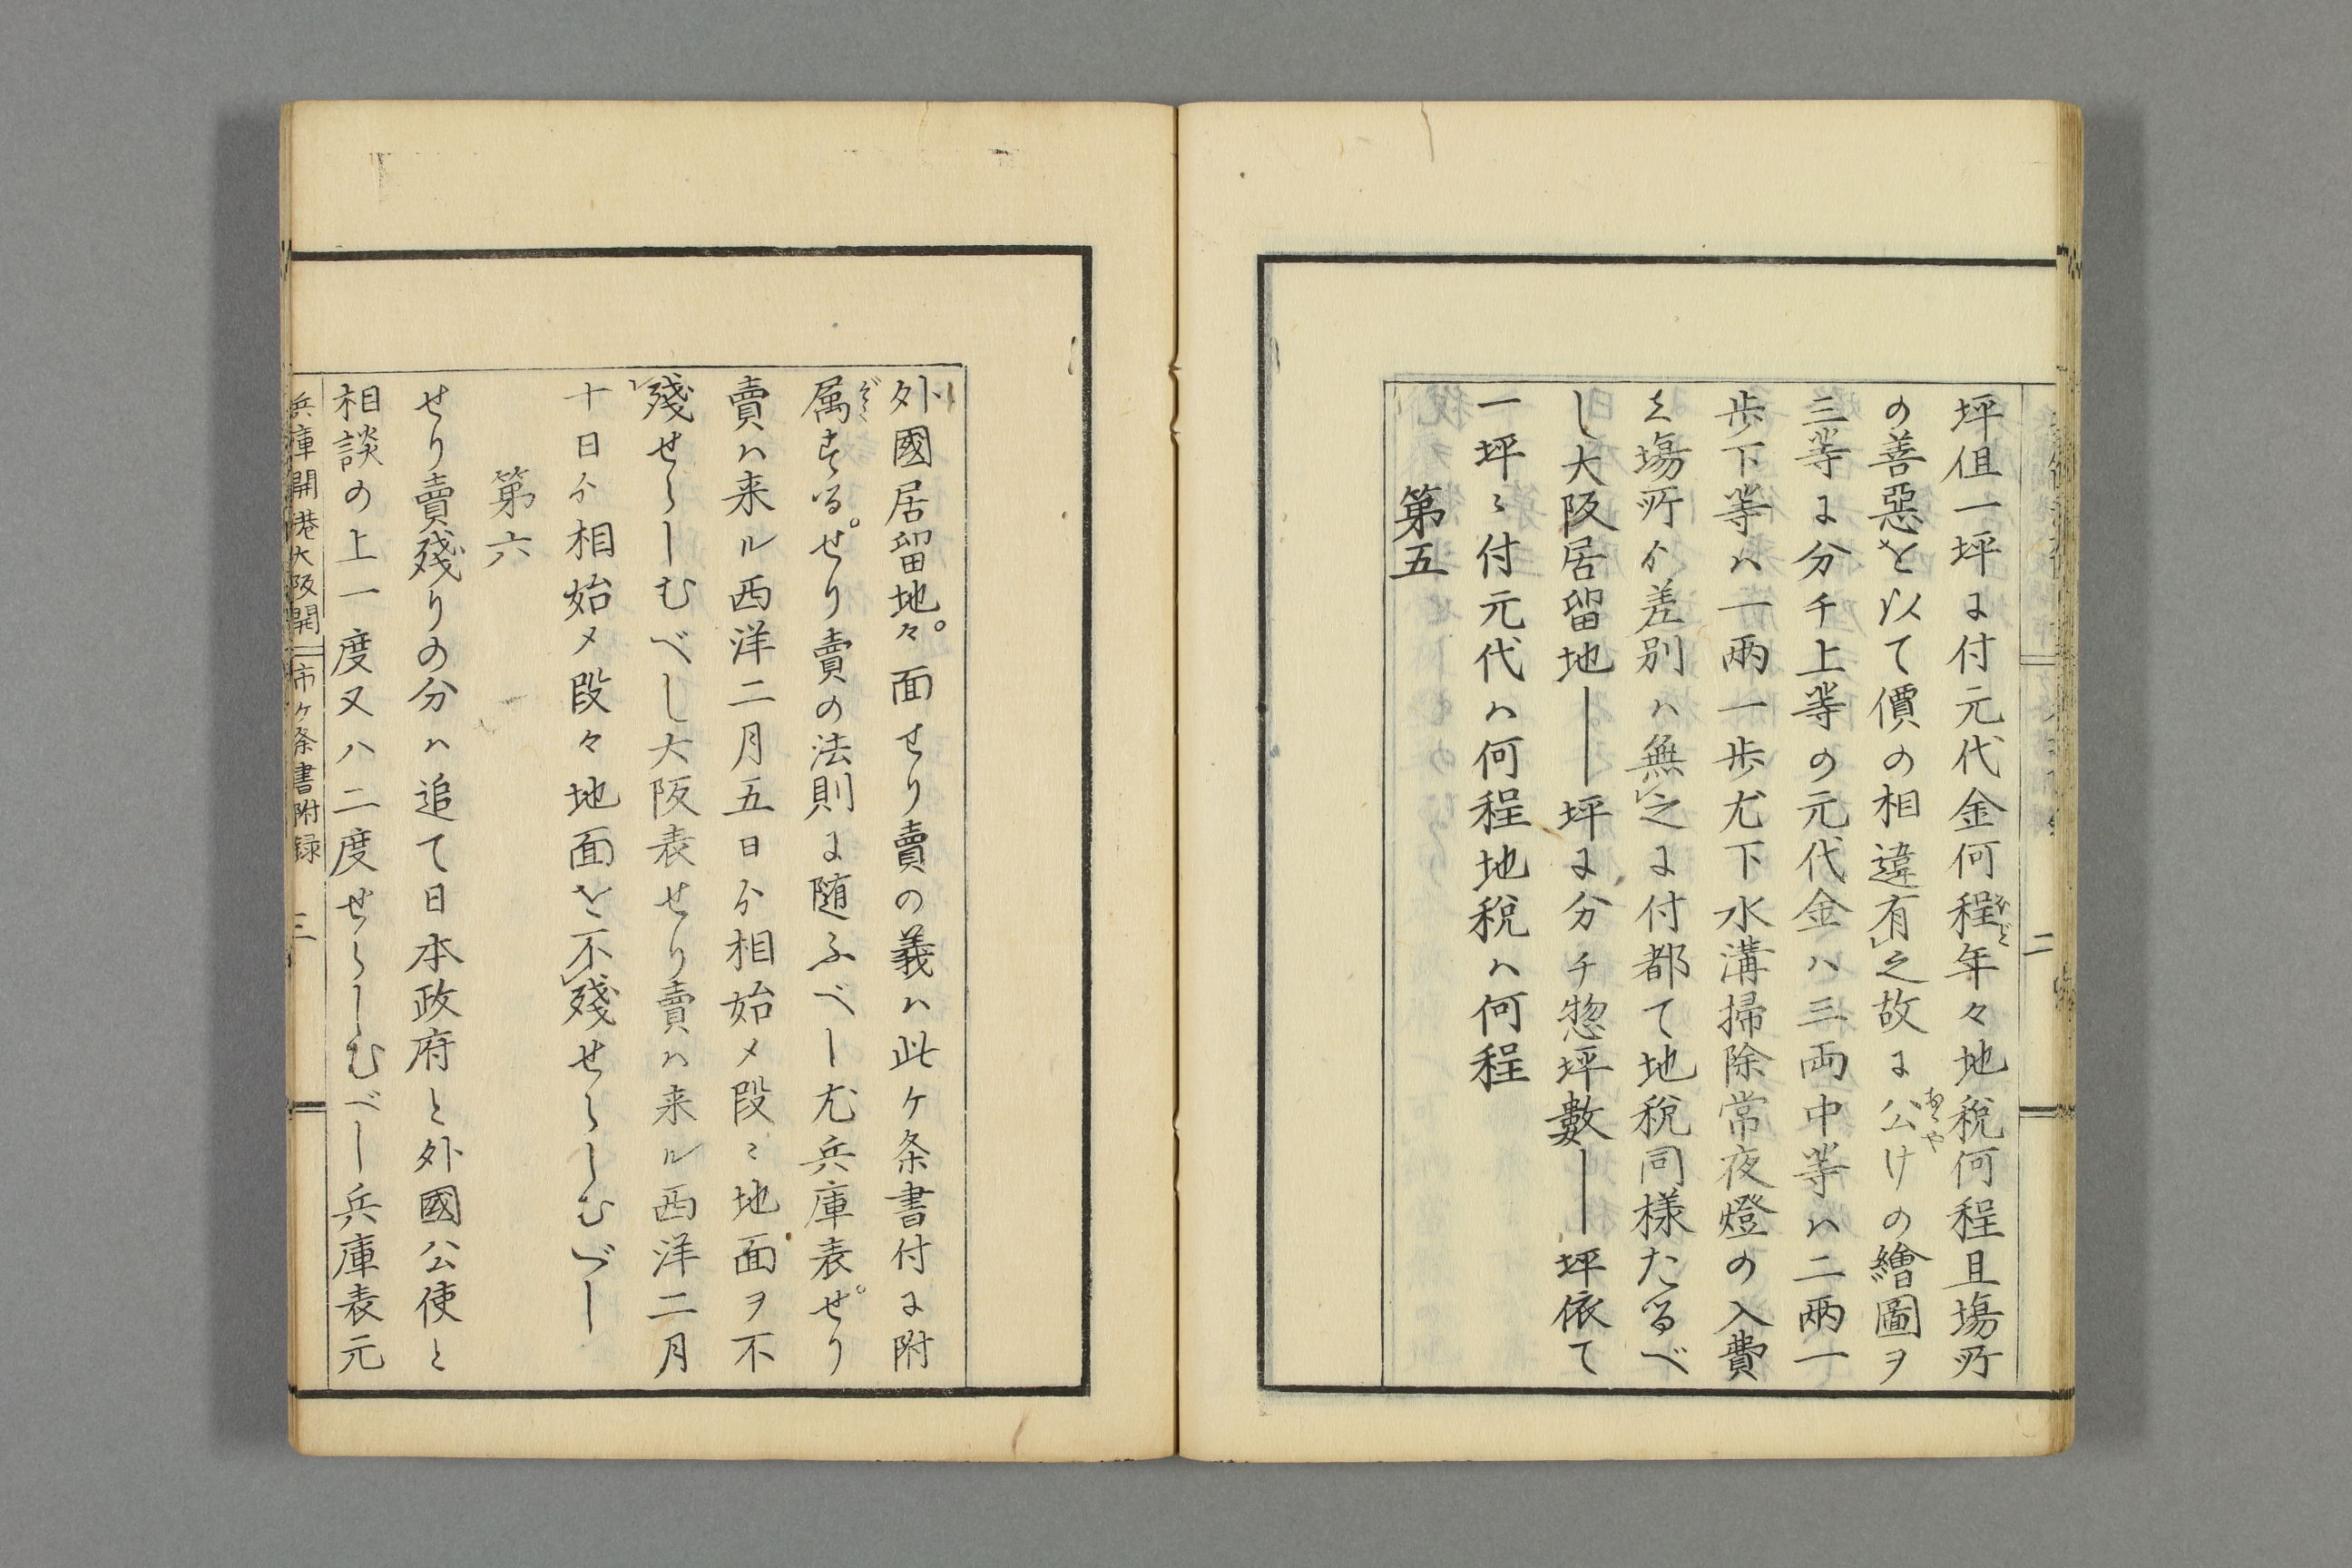 坪但一坪に付元代金何程年々地税何程且塲所
の善惡を以て價の相違有之故に公けの繪圖ヲ
三等に分チ上等の元代金ハ三両中等ハ二兩一
歩下等ハ一兩一歩尤下水溝掃除常夜燈の入費
ハ塲所ゟ差別ハ無之に付都て地税同様たるべ
し大阪居留地――坪に分チ惣坪數――坪依て
一坪ニ付元代ハ何程地税ハ何程
第五
二
外國居留地々面せり賣の義ハ此ケ条書付に附
属するせり賣の法則に随ふべし尤兵庫表せり
賣ハ来ル西洋二月五日ゟ相始メ段々地面ヲ不
殘せらしむべし大阪表せり賣ハ来ル西洋二月
十日ゟ相始メ段々地面を不殘せらしむべし
第六
せり賣殘りの分ハ追て日本政府と外國公使と
相談の上一度又ハ二度せらしむべし兵庫表元
兵庫開港大阪開市ケ条書附録
三